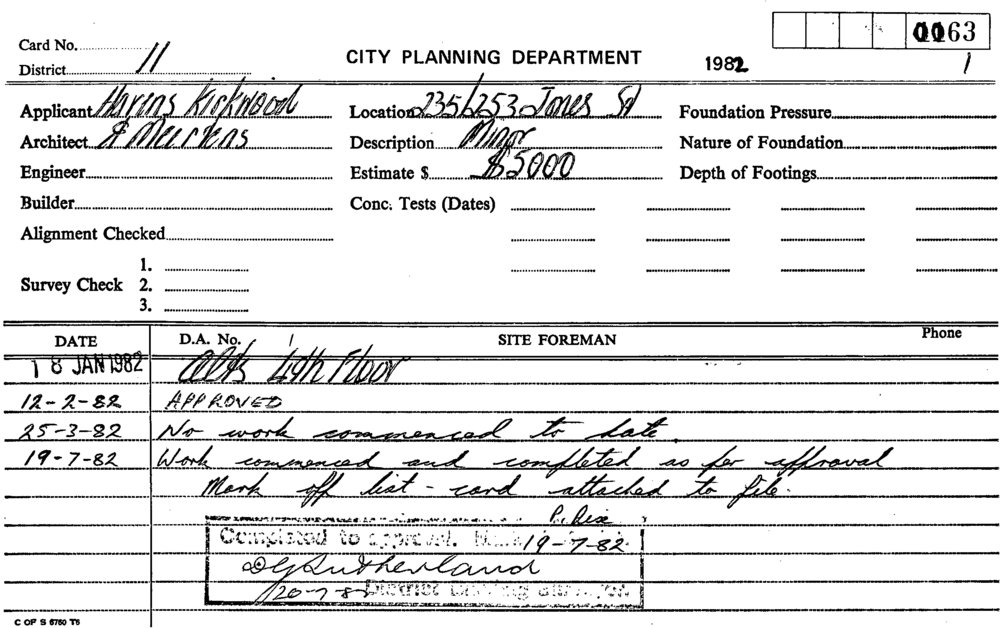 0063
Card No.
11
CITY PLANNING DEPARTMENT
1982
1
District
Applicant Havens Kirkwood
Location 235/253 Jones St
Foundation Pressure
Architect & Meirkens
Description Minor
Nature of Foundation
Engineer
Estimate $ $5000
Depth of Footings
Builder
Conc. Tests (Dates)
Alignment Checked
1.
Survey Check 2.
3.
DATE D.A. No. SITE FOREMAN Phone
18 JAN 1982 Alts 49th Floor
12-2-82 APPROVED
25-3-82 No work commenced to date.
19-7-82 Work commenced and completed as per approval
Mark off list - card attached to file.
P. Dix
Completed to approval. 19-7-82
D G Sutherland
20-7-82 District Building Surveyor.
C OF S 6760 T5